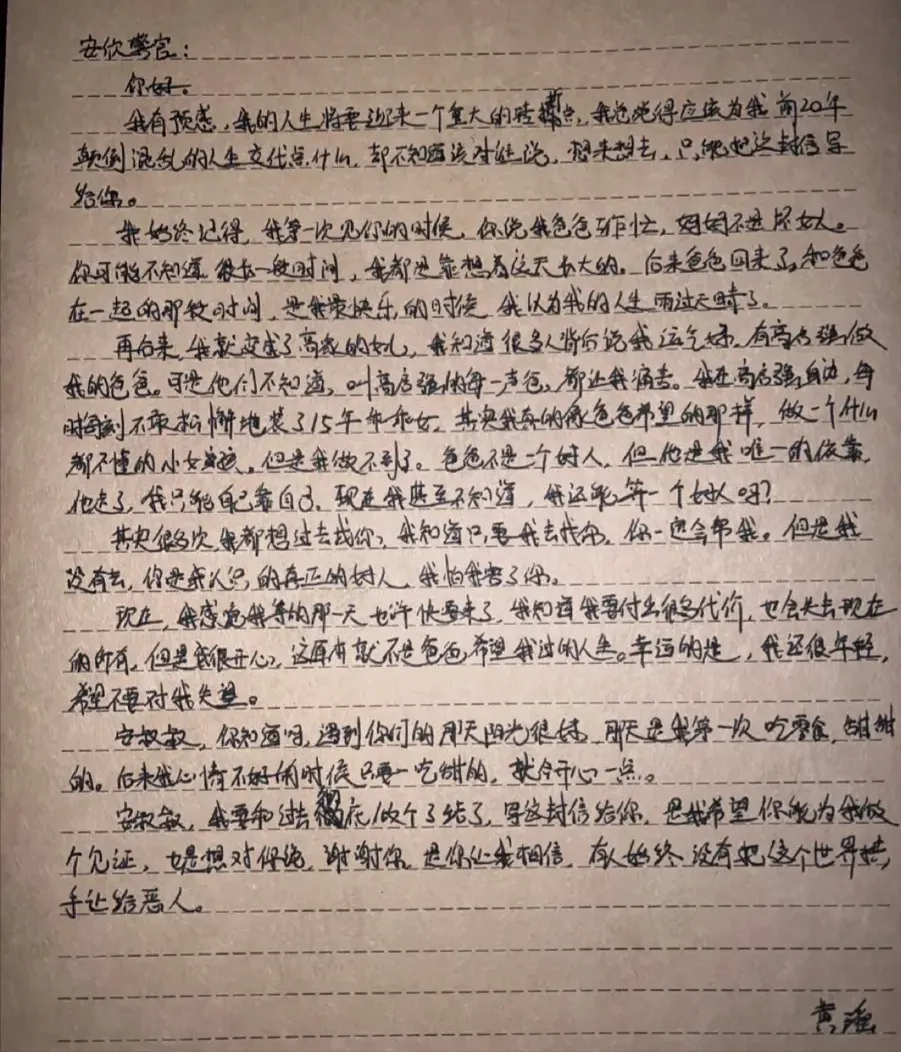 安欣警官：
你好。
我有预感，我的人生将要迎来一个重大的转折点，我总觉得应该为我前20年
颠倒混乱的人生交代点什么，却不知道该对谁说，想来想去，只能把这封信写
给你。
我始终记得，我第一次见你的时候，你说我爸爸工作忙，妈妈不是坏女人。
你可能不知道，很长一段时间，我都是靠想着这天长大的。后来爸爸回来了，和爸爸
在一起的那段时间，是我最快乐的时候，我认为我的人生雨过天晴了。
再后来，我就变成了高家的女儿，我知道很多人背后说我运气好，有高启强做
我的爸爸。可是他们不知道，叫高启强的每一声爸，都让我痛苦。我在高启强身边，每
时每刻不敢松懈地装了15年乖乖女。其实我真的像爸爸希望的那样，做一个什么
都不懂的小女孩，但是我做不到了。爸爸不是一个好人，但他是我唯一的依靠，
他走了，我只能自己靠自己。现在我甚至不知道，我还能算一个好人吗？
其实很多次，我都想过去找你，我知道只要我去找你，你一定会帮我。但是我
没有去，你是我认识的真正的好人，我怕我害了你。
现在，我感觉我等的那一天也许快要来了，我知道我要付出很多代价，也会失去现在
的所有，但是我很开心，这原本就不是爸爸希望我过的人生。幸运的是，我还很年轻，
希望不要对我失望。
安叔叔，你知道吗，遇到你们的那天阳光很好，那天是我第一次吃零食，甜甜
的。后来我心情不好的时候只要一吃甜的，就会开心一点。
安叔叔，我要和过去彻底做个了结了，写这封信给你，是我希望你能为我做
个见证，也是想对你说，谢谢你，是你让我相信，有人始终没有把这个世界拱
手让给恶人。
黄瑶